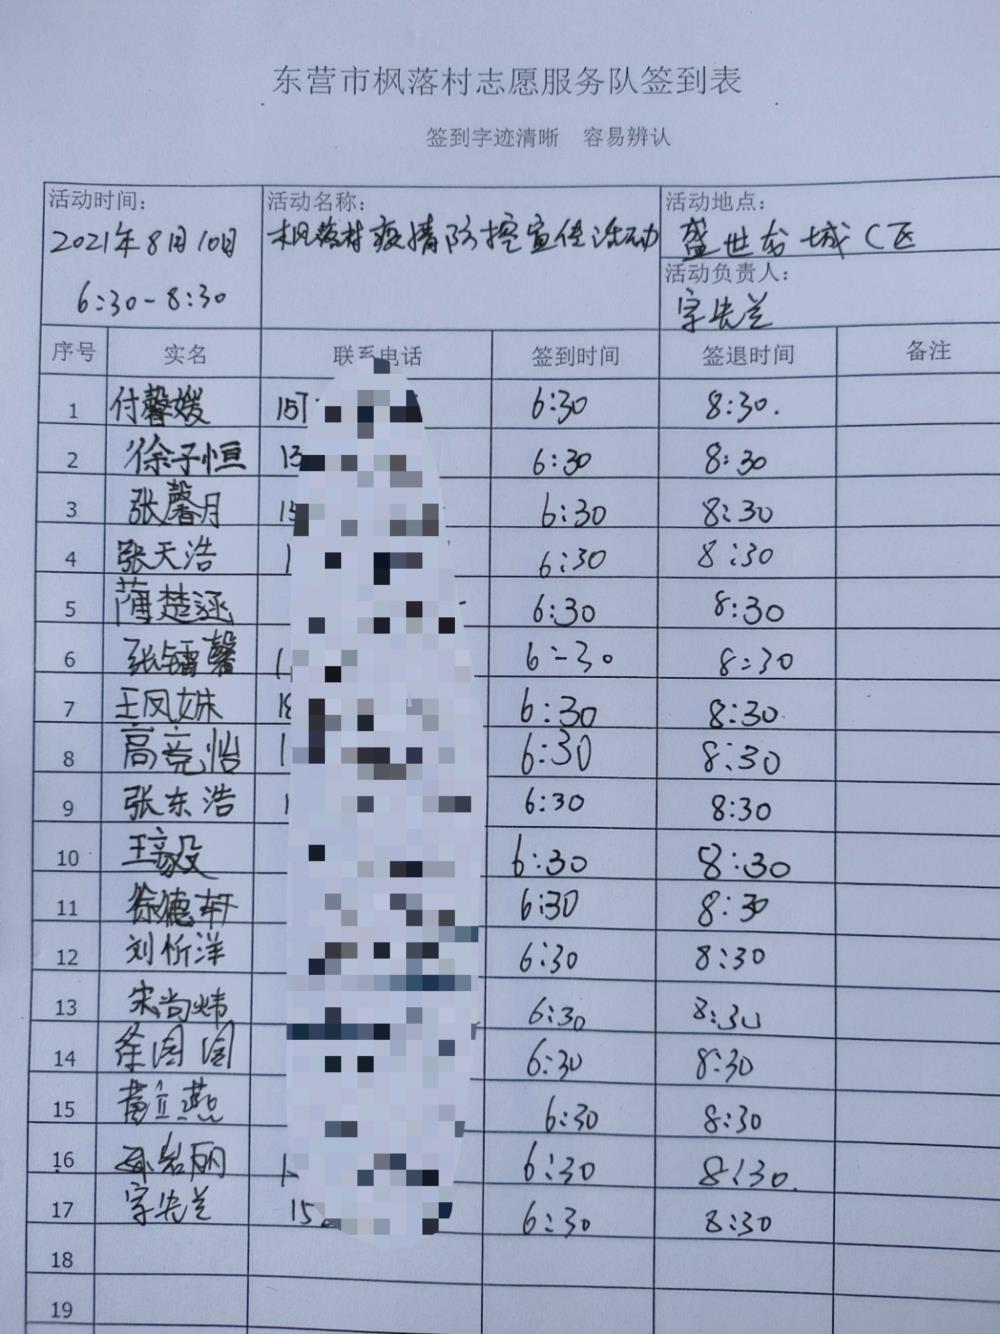 东营市枫落村志愿服务队签到表
签到字迹清晰 容易辨认
活动时间： 活动名称： 活动地点：
2021年8月10日 枫落村疫情防控宣传活动 盛世龙城C区
6:30-8:30 活动负责人：
序号 实名 联系电话 签到时间 签退时间 备注
1 付馨嫒 157 6:30 8:30.
2 徐子恒 13 6:30 8:30
3 张馨月 15 6:30 8:30
4 张天浩 1 6:30 8:30
5 蔺楚涵 6:30 8:30
6 张镭馨 1 6:30 8:30
7 王凤姝 18 6:30 8:30
8 高竞怡 1 6:30 8:30
9 张东浩 1 6:30 8:30
10 6:30 8:30
11 徐德轩 6:30 8:30
12 刘忻洋 6:30 8:30
13 宋尚炜 6:30 8:30
14 6:30 8:30
15 黄立燕 6:30 8:30
16 孙岩丽 1 6:30 8:30.
17 15 6:30 8:30
18
19